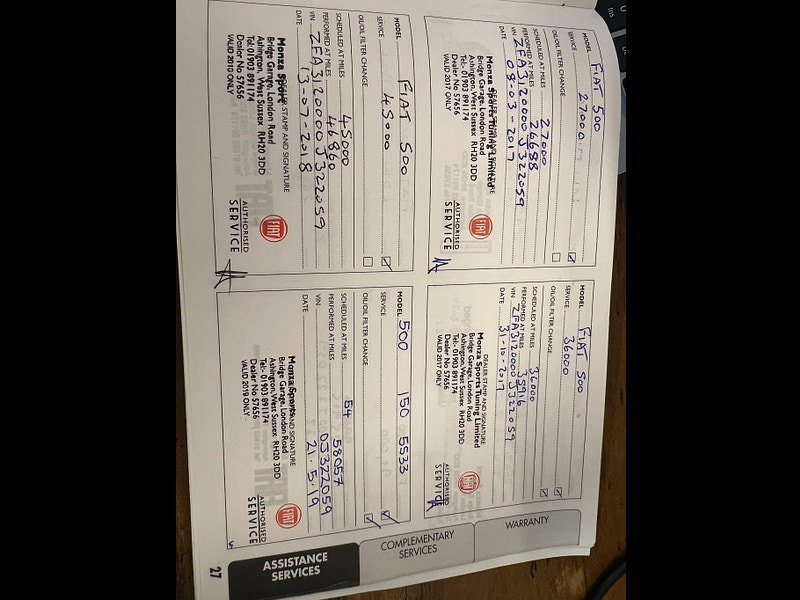 MODEL FIAT 500
SERVICE 27000
OIL/OIL FILTER CHANGE
SCHEDULED AT MILES 27000
PERFORMED AT MILES 26688
VIN ZFA3120000J322059
DATE 08-03-2017
DEALER STAMP AND SIGNATURE
Monza Sports Tuning Limited
Bridge Garage, London Road
Ashington, West Sussex RH20 3DD
Tel:- 01903 891174
Dealer No 57656
VALID 2017 ONLY
FIAT
AUTHORISED
SERVICE
MODEL FIAT 500
SERVICE 36000
OIL/OIL FILTER CHANGE
SCHEDULED AT MILES 36000
PERFORMED AT MILES 35916
VIN ZFA3120000J322059
DATE 31-10-2017
DEALER STAMP AND SIGNATURE
Monza Sports Tuning Limited
Bridge Garage, London Road
Ashington, West Sussex RH20 3DD
Tel:- 01903 891174
Dealer No 57656
VALID 2017 ONLY
FIAT
AUTHORISED
SERVICE
MODEL FIAT 500
SERVICE 45000
OIL/OIL FILTER CHANGE
SCHEDULED AT MILES 45000
PERFORMED AT MILES 46860
VIN ZFA3120000J322059
DATE 13-07-2018
STAMP AND SIGNATURE
Monza Sports
Bridge Garage, London Road
Ashington, West Sussex RH20 3DD
Tel:- 01903 891174
Dealer No 57656
VALID 2010 ONLY
FIAT
AUTHORISED
SERVICE
MODEL 500 150 5533
SERVICE
OIL/OIL FILTER CHANGE
SCHEDULED AT MILES 54
PERFORMED AT MILES 58057
VIN 0J322059
DATE 21.5.19
AND SIGNATURE
Monza Sports
Bridge Garage, London Road
Ashington, West Sussex RH20 3DD
Tel:- 01903 891174
Dealer No 57656
VALID 2019 ONLY
FIAT
AUTHORISED
SERVICE
WARRANTY
COMPLEMENTARY
SERVICES
ASSISTANCE
SERVICES
27